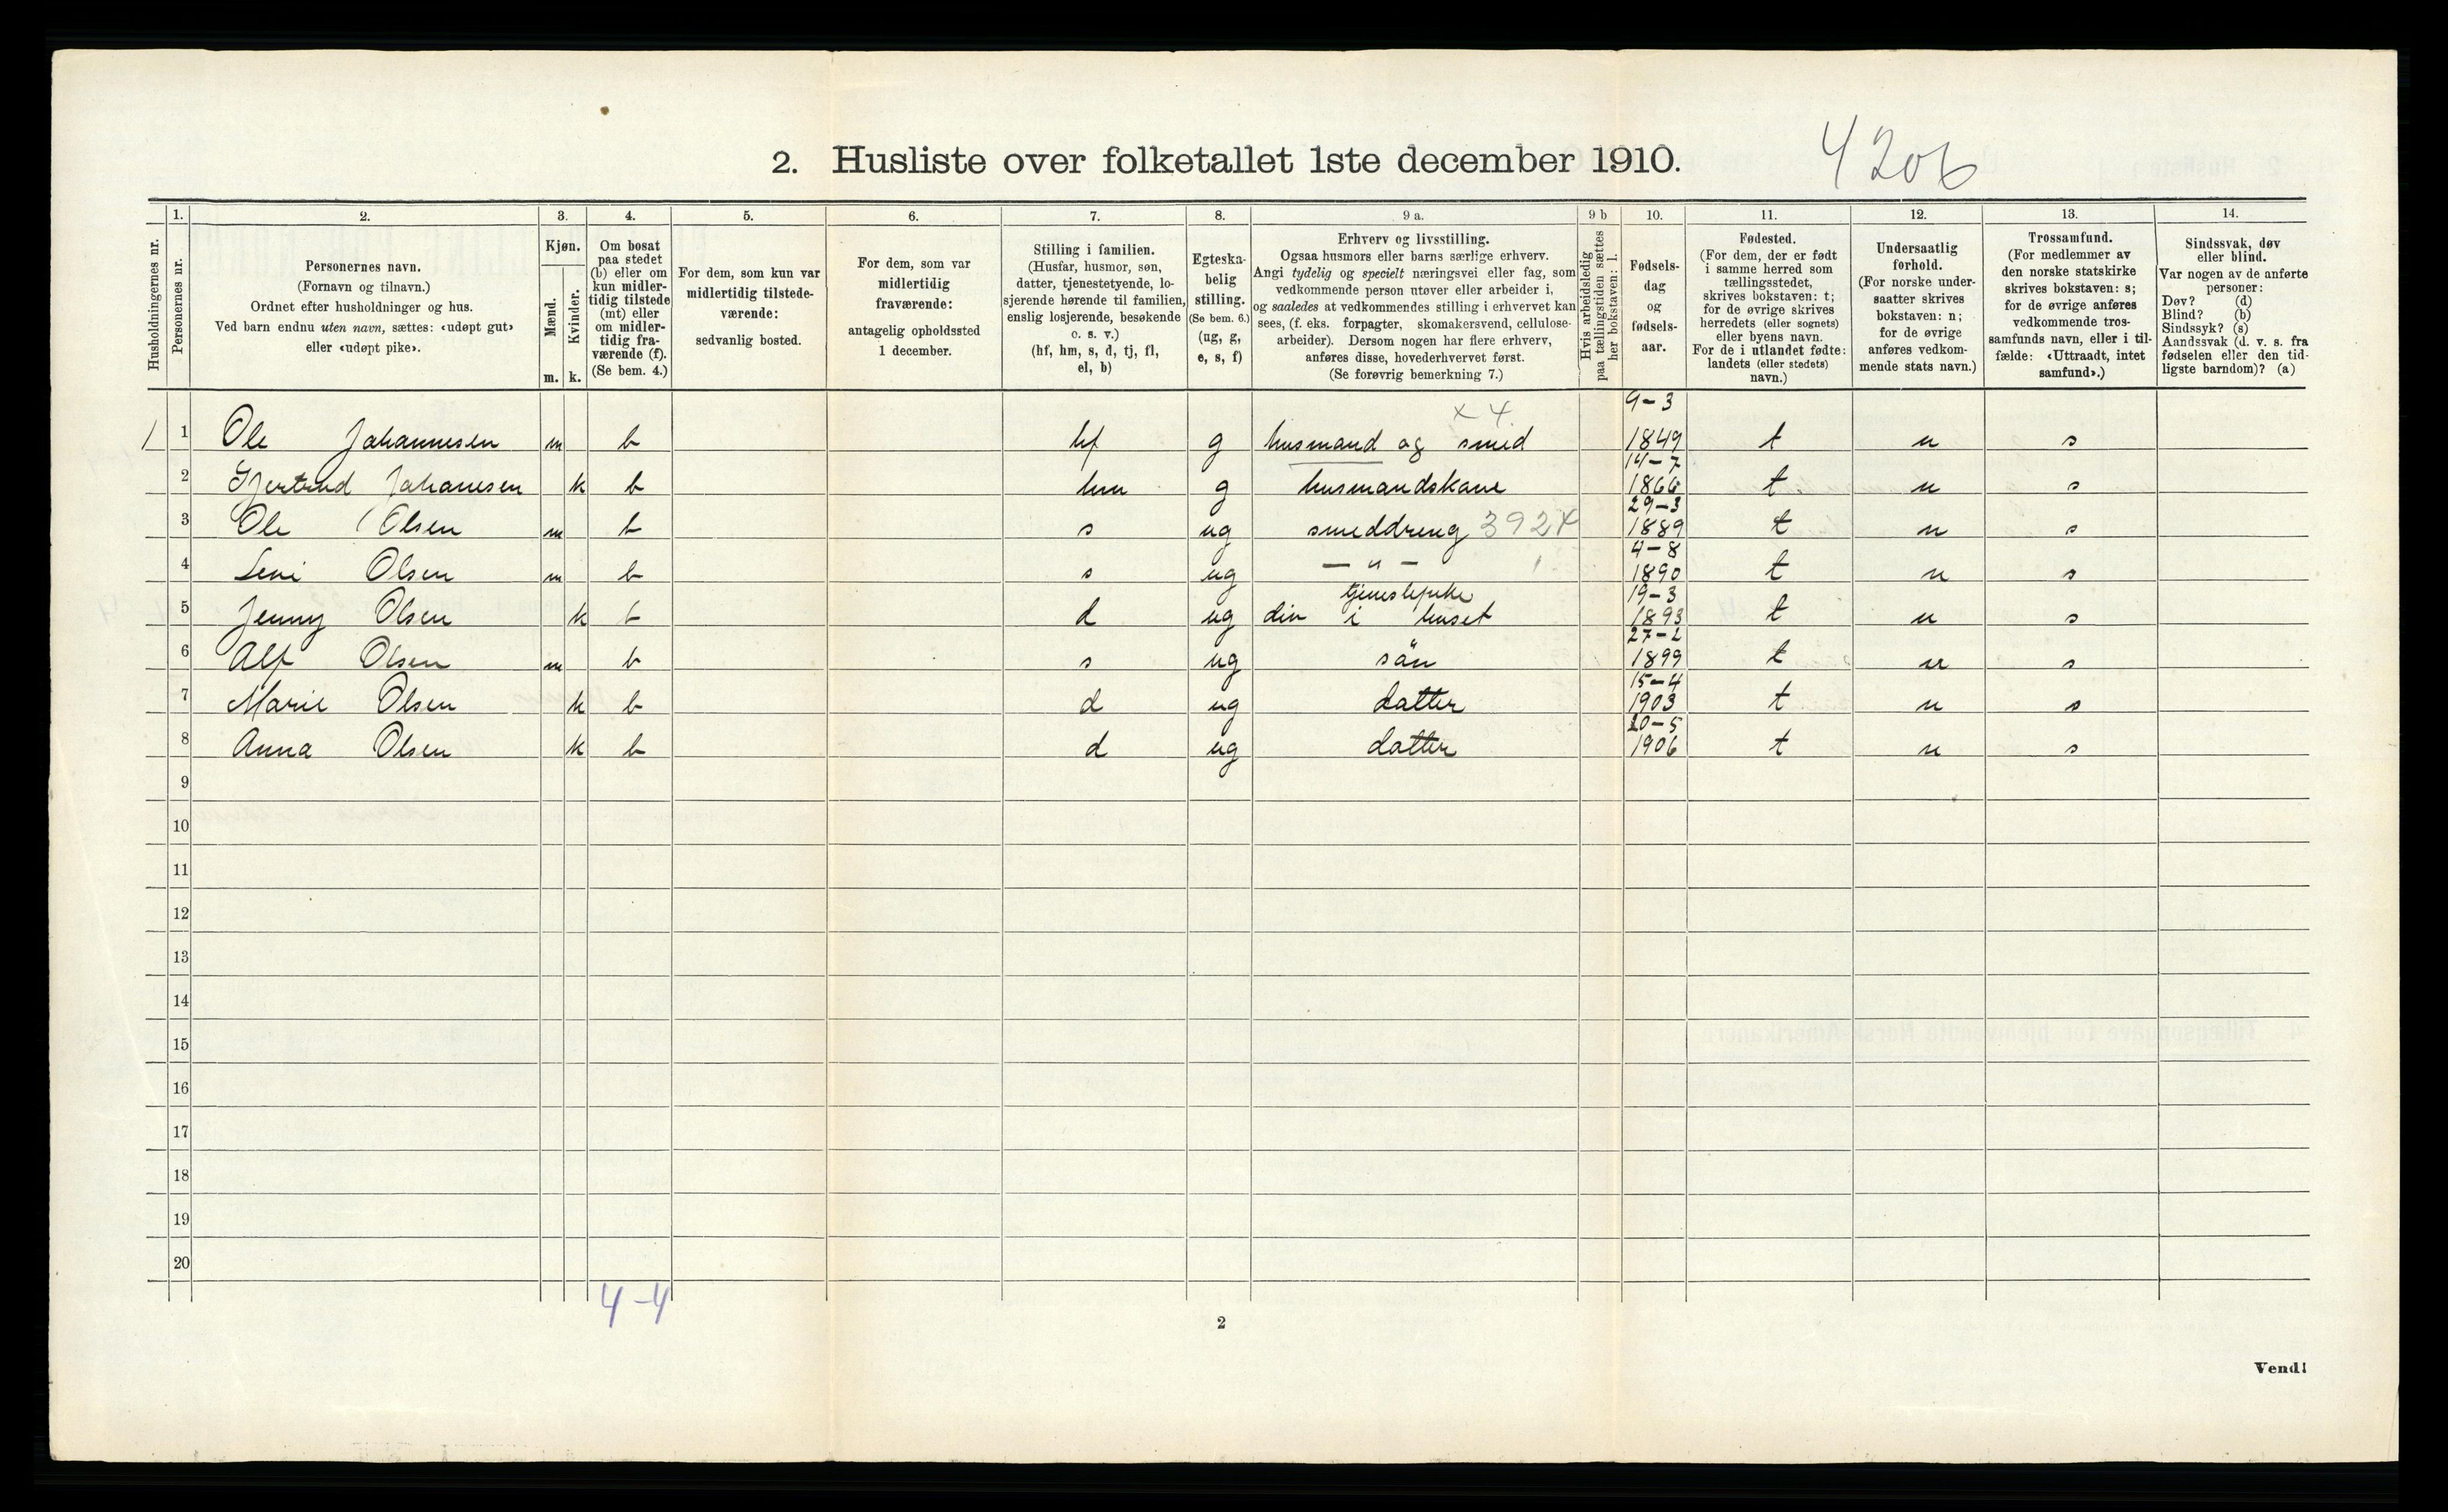 2. Husliste over folketallet 1ste december 1910.
4206
Husholdningernes nr.
1. Personernes nr.
2. Personernes navn. (Fornavn og tilnavn.) Ordnet efter husholdninger og hus. Ved barn endnu uten navn, sættes: «udøpt gut» eller «udøpt pike».
3. Kjøn. Mænd. m. Kvinder. k.
4. Om bosat paa stedet (b) eller om kun midlertidig tilstede (mt) eller om midlertidig fraværende (f). (Se bem. 4.)
5. For dem, som kun var midlertidig tilstedeværende: sedvanlig bosted.
6. For dem, som var midlertidig fraværende: antagelig opholdssted 1 december.
7. Stilling i familien. (Husfar, husmor, søn, datter, tjenestetyende, losjerende hørende til familien, enslig losjerende, besøkende o. s. v.) (hf, hm, s, d, tj, fl, el, b)
8. Egteskabelig stilling. (Se bem. 6.) (ug, g, e, s, f)
9 a. Erhverv og livsstilling. Ogsaa husmors eller barns særlige erhverv. Angi tydelig og specielt næringsvei eller fag, som vedkommende person utøver eller arbeider i, og saaledes at vedkommendes stilling i erhvervet kan sees, (f. eks. forpagter, skomakersvend, cellulosearbeider). Dersom nogen har flere erhverv, anføres disse, hovederhvervet først. (Se forøvrig bemerkning 7.)
9 b Hvis arbeidsledig paa tællingstiden sættes her bokstaven: l.
10. Fødselsdag og fødselsaar.
11. Fødested. (For dem, der er født i samme herred som tællingsstedet, skrives bokstaven: t; for de øvrige skrives herredets (eller sognets) eller byens navn. For de i utlandet fødte: landets (eller stedets) navn.)
12. Undersaatlig forhold. (For norske undersaatter skrives bokstaven: n; for de øvrige anføres vedkommende stats navn.)
13. Trossamfund. (For medlemmer av den norske statskirke skrives bokstaven: s; for de øvrige anføres vedkommende trossamfunds navn, eller i tilfælde: «Uttraadt, intet samfund».)
14. Sindssvak, døv eller blind. Var nogen av de anførte personer: Døv? (d) Blind? (b) Sindssyk? (s) Aandssvak (d. v. s. fra fødselen eller den tidligste barndom)? (a)
x 4
1 1 Ole Johannesen m b hf g husmand og smed 9-3 1849 t n s
2 Gjertrud Johanesen k b hm g husmandskone 14-7 1866 t. n s
3 Ole Olsen m b s ug smeddreng 392X 29-3 1889 t n s
4 Leni Olsen m b s ug — " — 4-8 1890 t n s
5 Jenny Olsen k b d ug tjenestepike div i huset 19-3 1893 t n s
6 Alf Olsen m b s ug sön 27-2 1899 t n s
7 Marie Olsen k b d ug datter 15-4 1903 t n s
8 Anna Olsen k b d ug datter 20-5 1906 t n s
9
10
11
12
13
14
15
16
17
18
19
20
4-4
2
Vend!